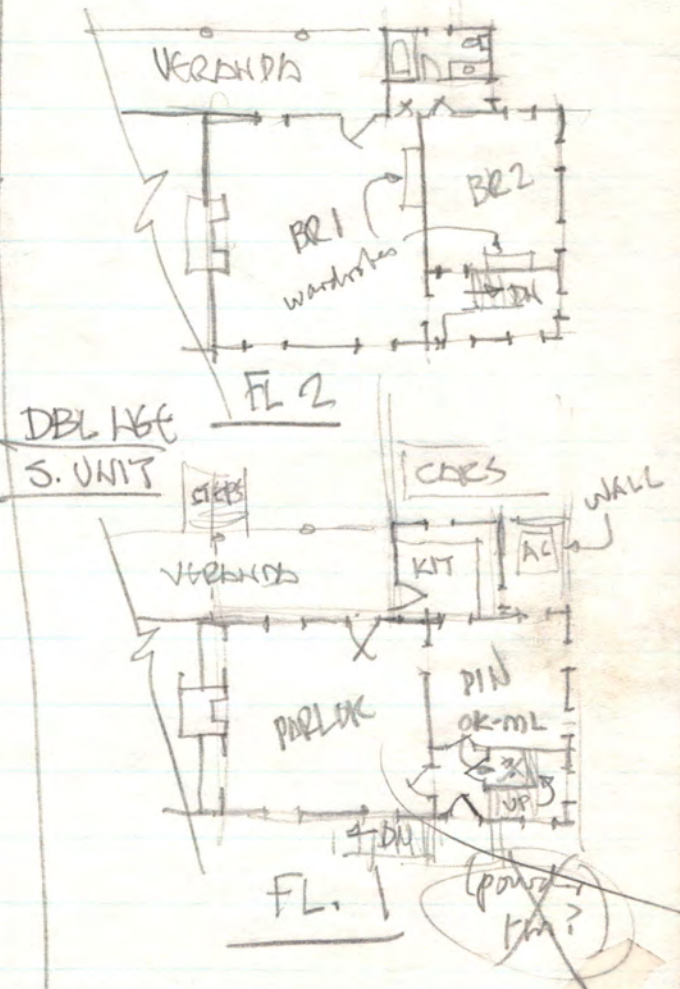 VERANDA
BR2
BR1
wardrobes
DN
FL 2
DBL HSE
S. UNIT
STEPS
CARS
WALL
VERANDA
KIT
AC
DIN
OK-ML
PARLOR
UP
DN
FL. 1
(powder
rm?)